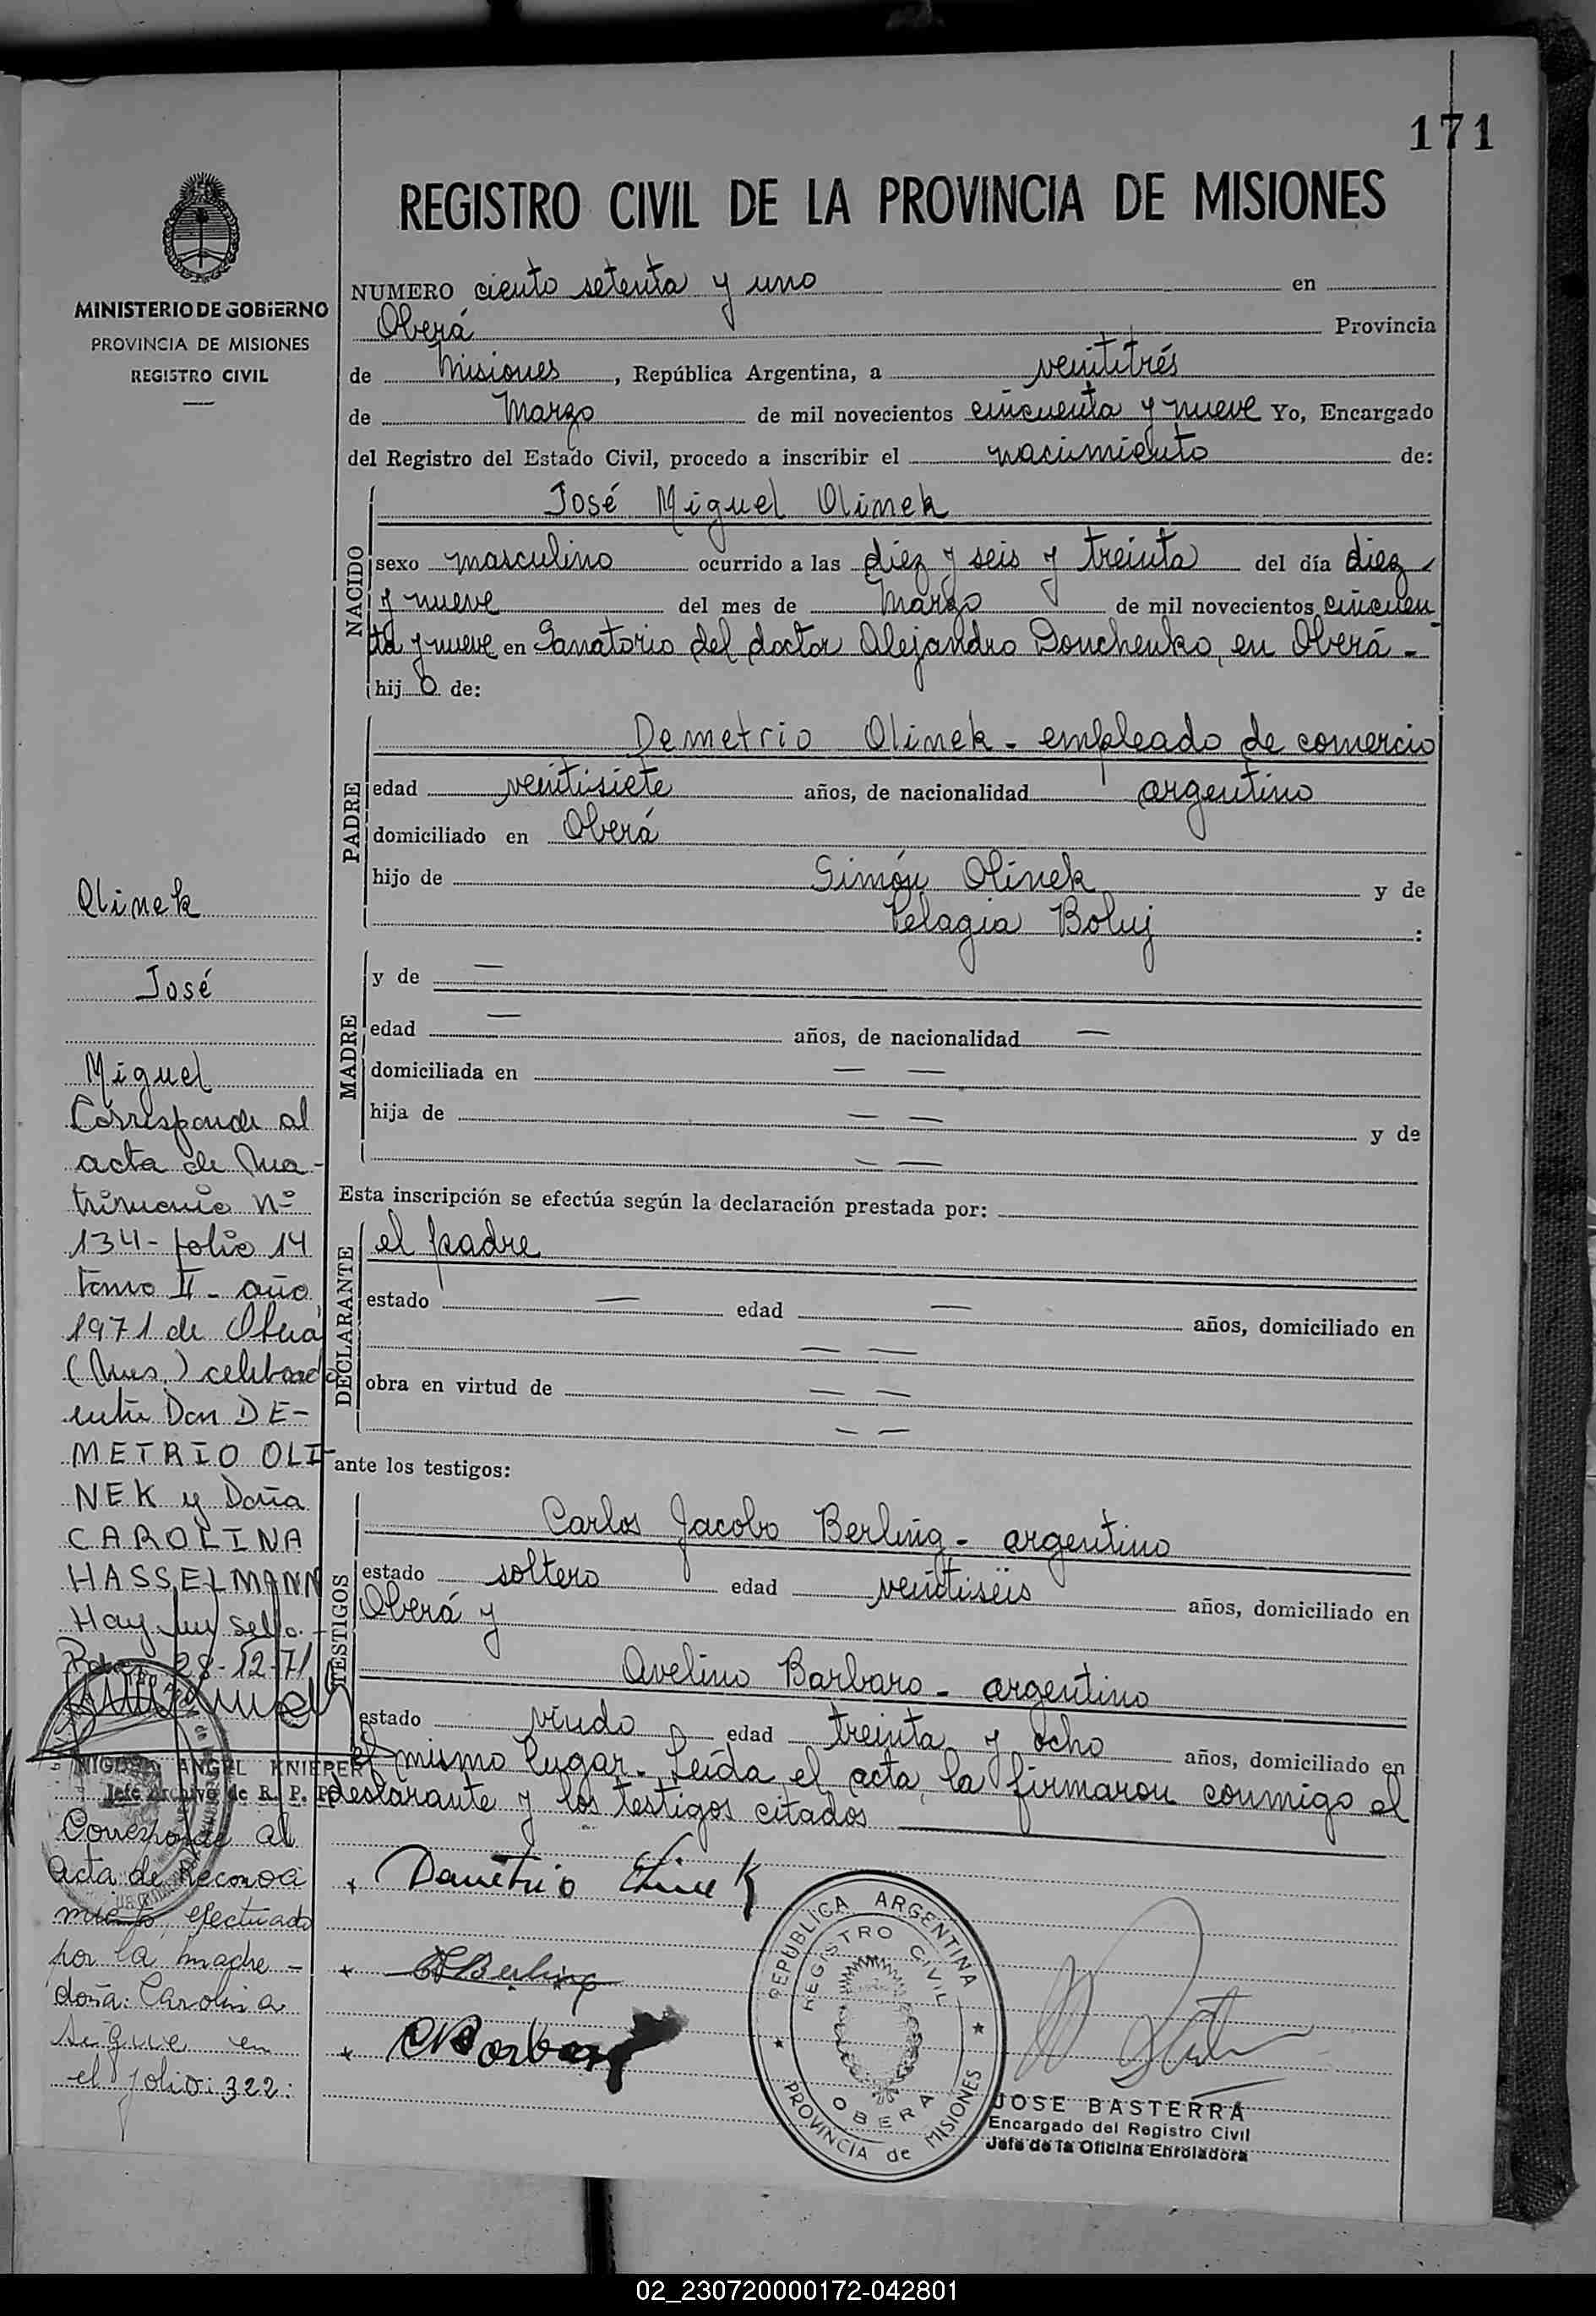 171
REGISTRO CIVIL DE LA PROVINCIA DE MISIONES
MINISTERIO DE GOBIERNO
PROVINCIA DE MISIONES
REGISTRO CIVIL
NUMERO ciento setenta y uno en
Oberá Provincia
de Misiones, República Argentina, a veintitrés
de Marzo de mil novecientos cincuenta y nueve Yo, Encargado
del Registro del Estado Civil, procedo a inscribir el nacimiento de:
NACIDO
José Miguel Olinek
sexo masculino ocurrido a las diez y seis y treinta del día diez
y nueve del mes de Marzo de mil novecientos cincuen
ta y nueve en Sanatorio del doctor Alejandro Donchenko, en Oberá -
hijo de:
PADRE
Demetrio Olinek - empleado de comercio
edad veintisiete años, de nacionalidad argentino
domiciliado en Oberá
hijo de Simón Olinek y de
Pelagia Boluj :
MADRE
y de —
edad — años, de nacionalidad —
domiciliada en — —
hija de — — y de
— —
Esta inscripción se efectúa según la declaración prestada por:
DECLARANTE
el padre
estado — edad — años, domiciliado en
— —
obra en virtud de — —
— —
ante los testigos:
TESTIGOS
Carlos Jacobo Berling - argentino
estado soltero edad veintiseis años, domiciliado en
Oberá y
Avelino Barbaro - argentino
estado viudo edad treinta y ocho años, domiciliado en
el mismo lugar. Leída el acta, la firmaron conmigo el
declarante y los testigos citados
Olinek
José
Miguel
Corresponde al
acta de Ma-
trimonio Nº
134 - folio 14
tomo II - año
1971 de Oberá
(Mnes.) celebrado
entre Don DE-
METRIO OLI-
NEK y Doña
CAROLINA
HASSELMANN
Hay un sello.
28-12-71
MIGUEL ANGEL KNIEPER
Jefe Archivo de R. P. P.
Corresponde al
acta de reconoci
miento, efectuado
por la madre -
doña: Carolina
sigue en
el folio: 322:
Berling
REPUBLICA ARGENTINA
REGISTRO CIVIL
OBERA
PROVINCIA de MISIONES
JOSE BASTERRA
Encargado del Registro Civil
Jefe de la Oficina Enroladora
02_230720000172-042801